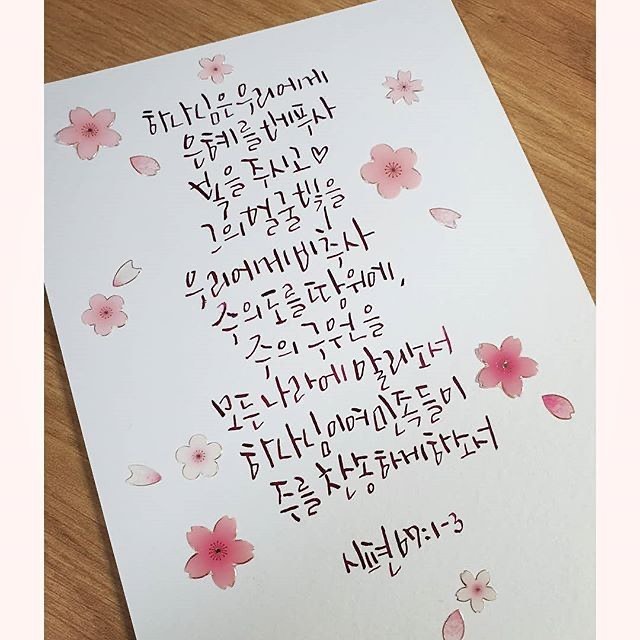 하나님은 우리에게
은혜를 베푸사
복을 주시고♡
그의 얼굴 빛을
우리에게 비추사
주의 도를 땅 위에,
주의 구원을
모든 나라에 알리소서
하나님이여 민족들이
주를 찬송하게 하소서
시편 67:1-3